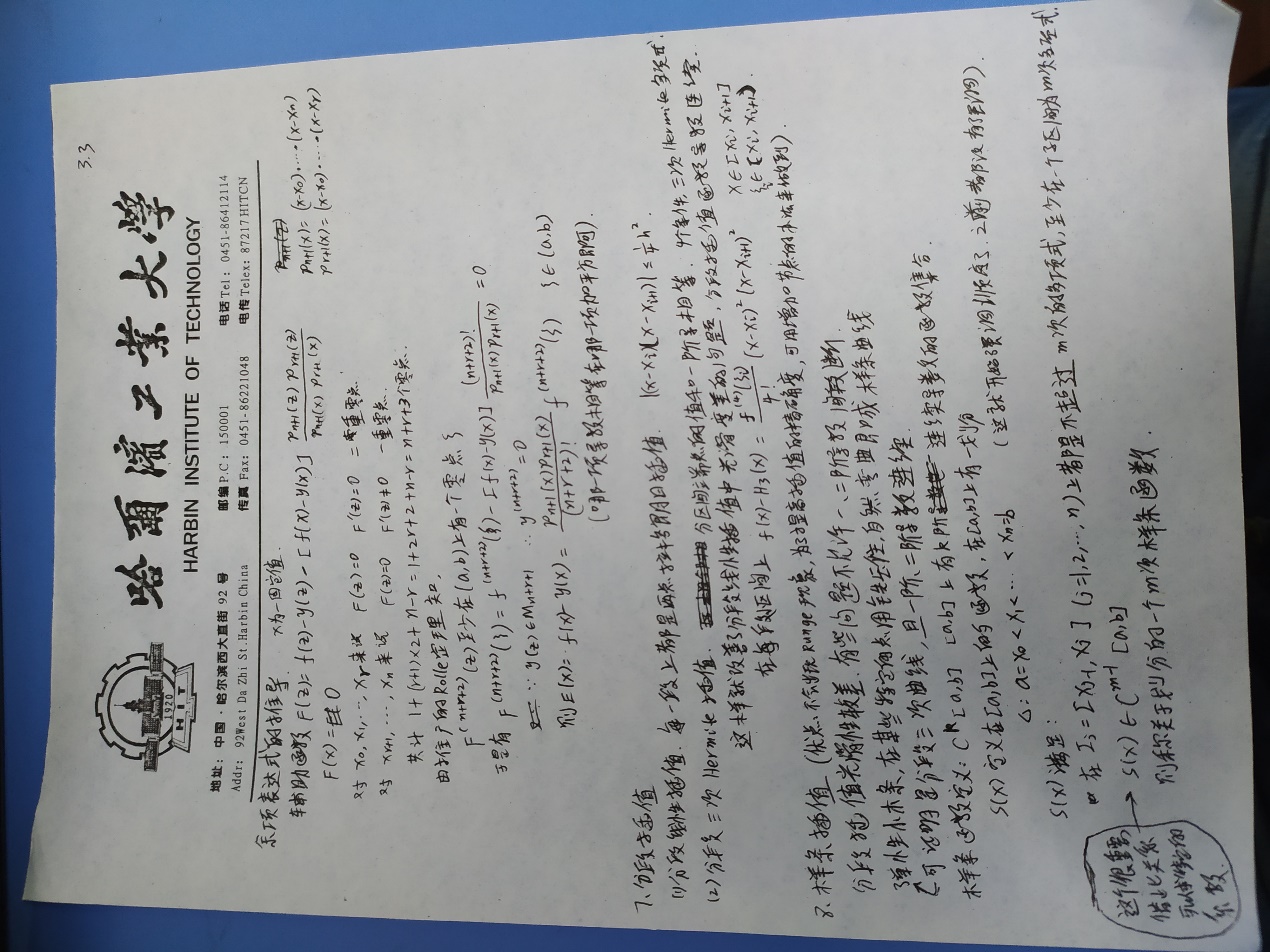 3.3
哈爾濱工業大學
1920
HIT
HARBIN INSTITUTE OF TECHNOLOGY
地址: 中国·哈尔滨西大直街 92 号 邮编P.C: 150001 电话Tel: 0451-86412114
Addr: 92West Da Zhi St.Harbin China 传真 Fax: 0451-86221048 电传Telex: 87217 HITCN
余项表达式的推导. x为一固定值.
辅助函数 F(z)= f(z)-y(z)-[f(x)-y(x)] \frac{P_{n+1}(z) P_{r+1}(z)}{P_{n+1}(x) P_{r+1}(x)} P_{n+1}(x)= (x-x_0)·····(x-x_n)
F(x)= 0 P_{r+1}(x)= (x-x_0)·····(x-x_r)
对 x_0, x_1, ···, x_r 来说 F(z)=0 F'(z)=0 二重零点
对 x_{r+1}, ···, x_n 来说 F(z)=0 F'(z)≠0 一重零点.
共计 1+(r+1)×2+n-r=1+2r+2+n-r=n+r+3个零点.
由推广的Rolle定理知,
F^{(n+r+2)}(z)至少在(a,b)上有一个零点ξ
于是有 F^{(n+r+2)}(ξ)= f^{(n+r+2)}(ξ)-[f(x)-y(x)] \frac{(n+r+2)!}{P_{n+1}(x)P_{r+1}(x)} =0
∵ y(z)∈M_{n+r+1} ∴ y^{(n+r+2)}=0
则E(x)= f(x)-y(x)= \frac{P_{n+1}(x)P_{r+1}(x)}{(n+r+2)!} f^{(n+r+2)}(ξ) ξ∈(a,b)
(哪一项导数相等在哪一项加平方即可).
7. 分段插值
(1)分段线性插值. 每一段上都是两点拉格朗日插值. |(x-x_i)(x-x_{i+1})| ≤ \frac{1}{4}h^2
(2)分段三次Hermite插值. 分区间端点的值和一阶导相等. 4个条件, 三次Hermite多项式.
这样就改善了分段线性插值中光滑度差的问题, 分段插值函数导数连续.
在每段区间上 f(x)-H_3(x)= \frac{f^{(4)}(ξ_i)}{4!} (x-x_i)^2 (x-x_{i+1})^2 x∈[x_i, x_{i+1}]
ξ_i∈[x_i, x_{i+1}].
8. 样条插值 (优点: 不会出现Runge现象, 为了提高插值的精确度, 可用增加节点的办法来做到).
分段插值光滑性较差. 有些问题不允许一、二阶导数间断.
弹性小木条, 在某些特定的点用铁压住, 自然弯曲即成样条曲线
可证明是分段三次曲线, 且一阶、二阶导数连续.
样条函数定义: C^k[a,b] [a,b]上有k阶连续导数的函数集合.
S(x)定义在[a,b]上的函数, 在[a,b]上有一划分
△: a=x_0<x_1<···<x_n=b (这就开始强调顺序了. 之前都没有强调).
S(x)满足:
在 I_j=[x_{j-1}, x_j] (j=1,2,···, n)上都是不超过m次的多项式, 至少在一个子区间为m次多项式.
S(x)∈C^{m-1}[a,b]
则称关于划分的一个m次样条函数.
这个很重要
借此关系
可以求特定的
系数.